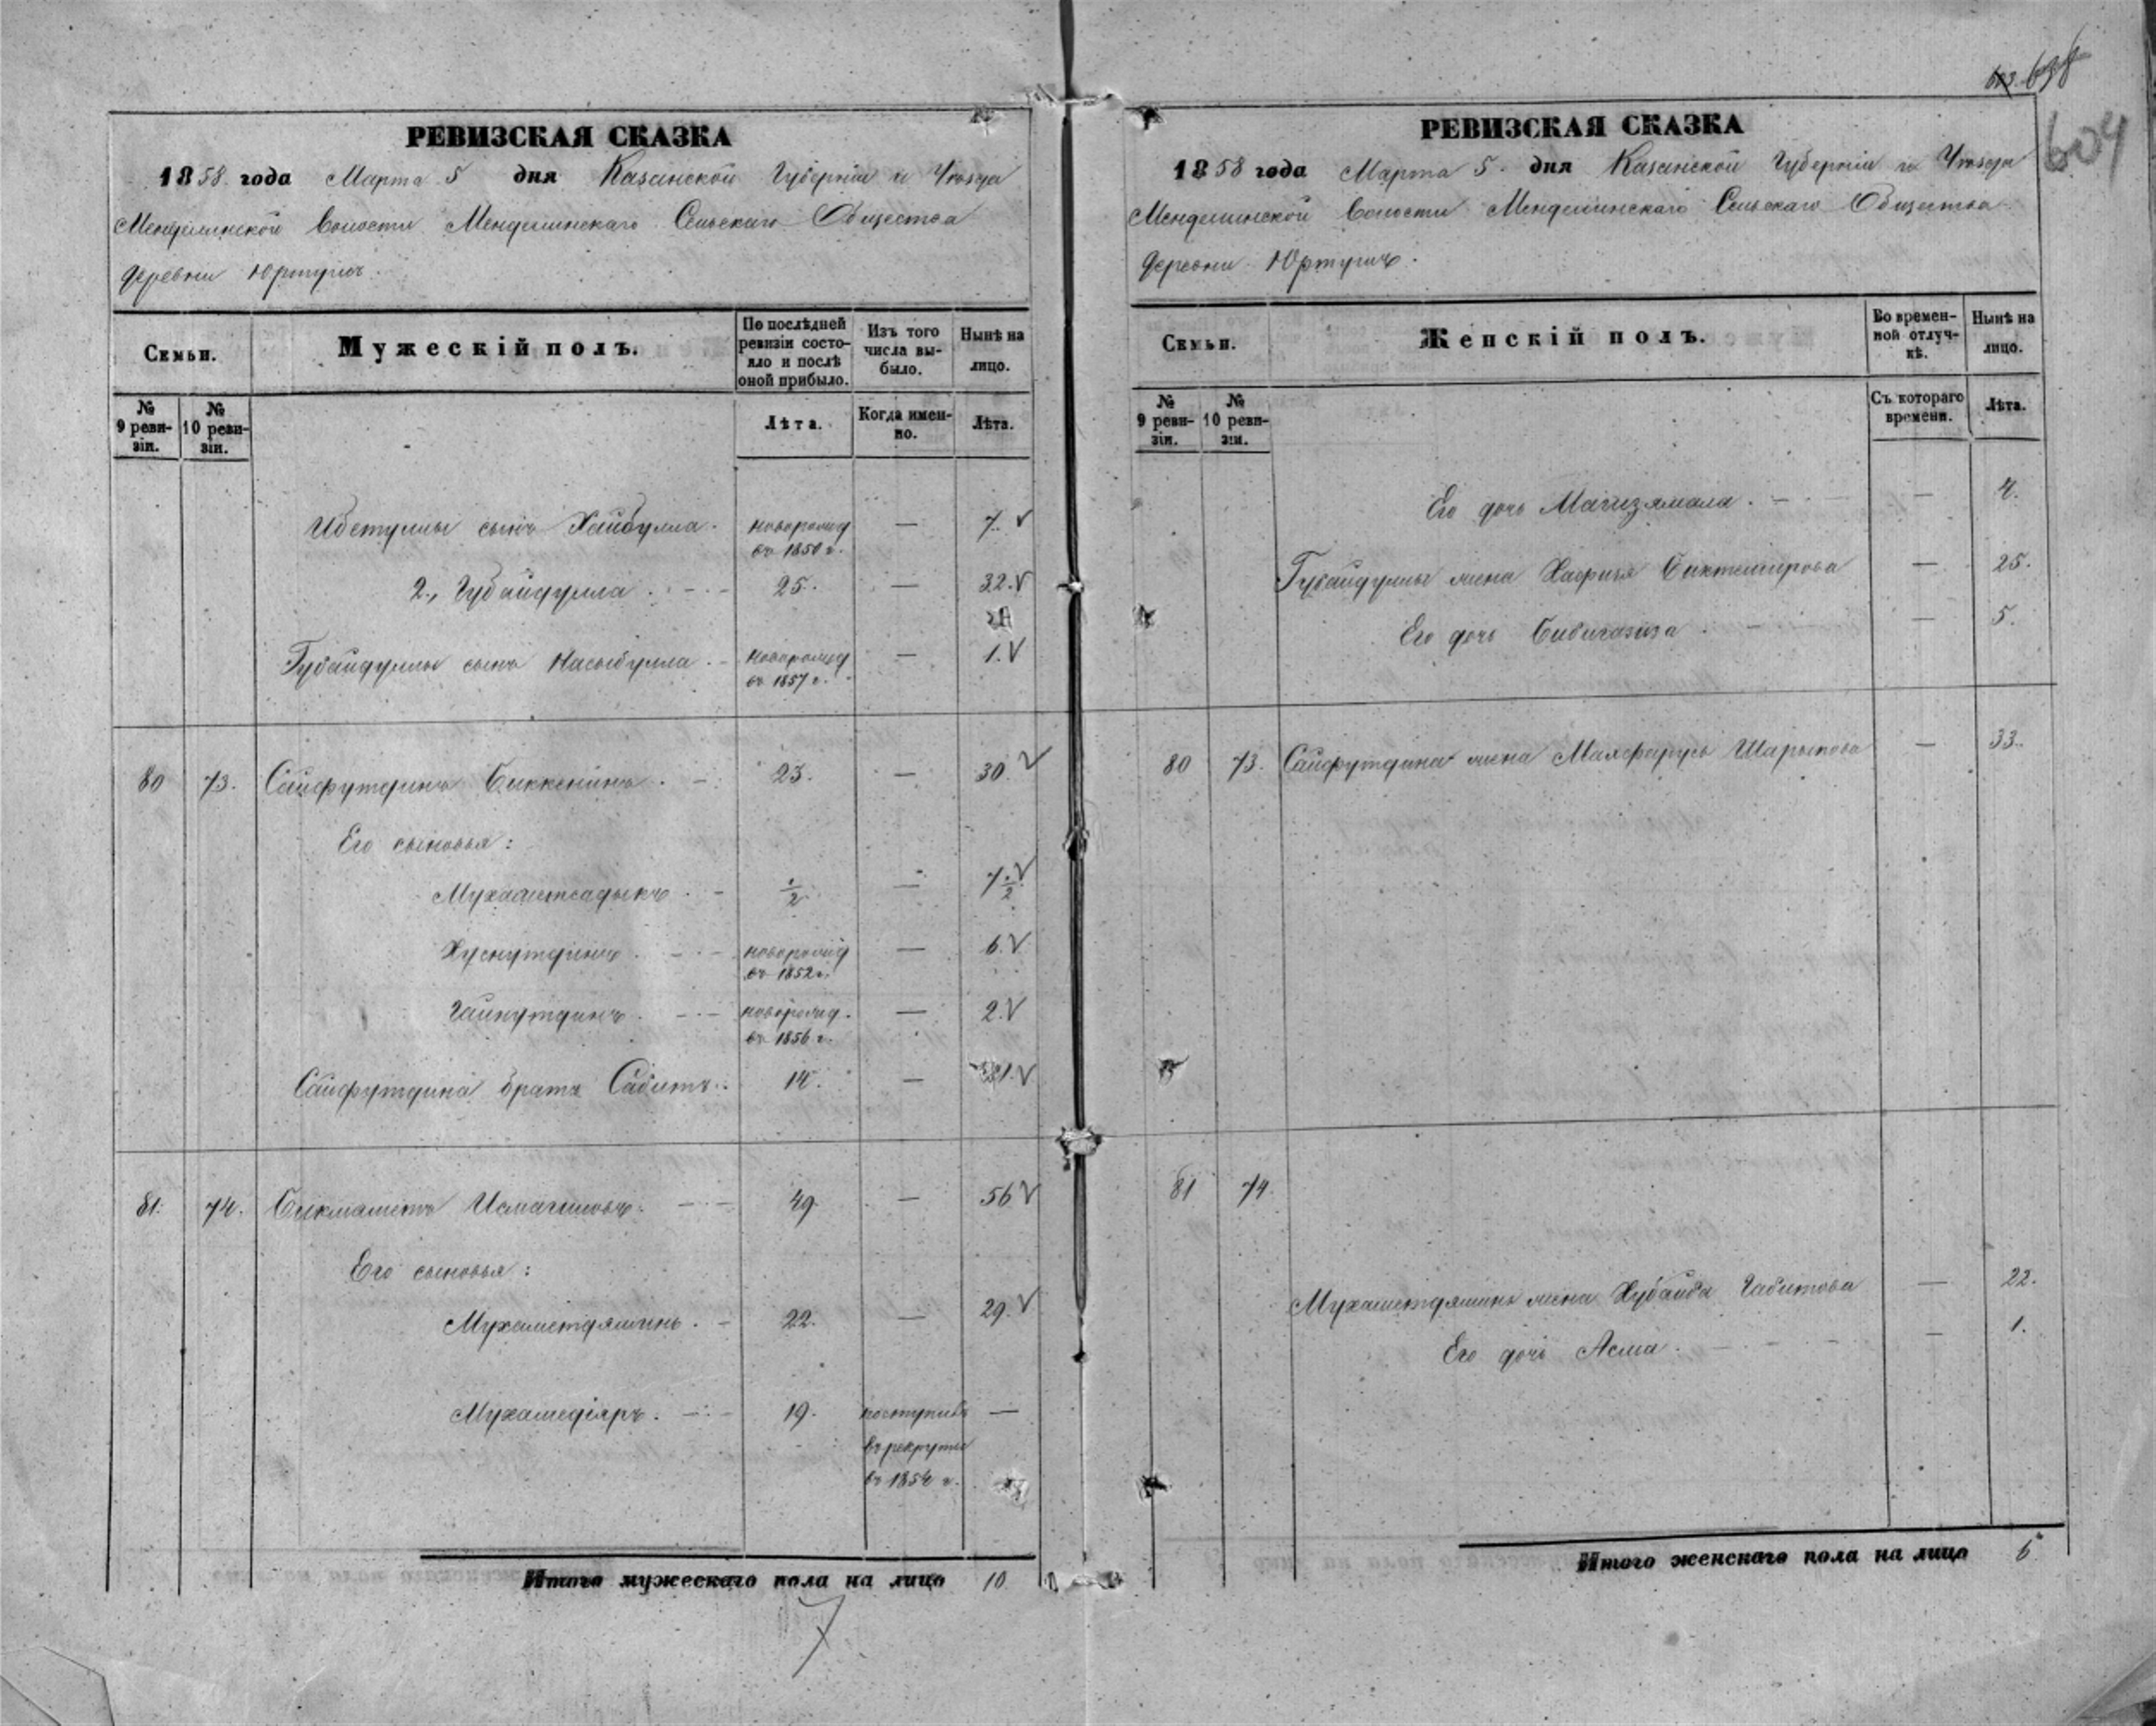 603. 698
604
РЕВИЗСКАЯ СКАЗКА
1858 года Марта 5 дня Казанской Губерніи и Уѣзда
Менделинской волости Менделинскаго Сельскаго Общества
деревни Юртушъ.
Семьи.
Мужескій полъ.
По послѣдней ревизіи состояло и послѣ оной прибыло.
Изъ того числа выбыло.
Нынѣ на лицо.
№ 9 ревизіи.
№ 10 ревизіи.
Лѣта.
Когда именно.
Лѣта.
Ибетуллы сынъ Хайбулла. новорожд въ 1850 г. — 7. V
2., Губайдулла 25. — 32. V
Губайдуллы сынъ Насыбулла новорожд въ 1857 г. — 1. V
80 73. Сайфутдинъ Биккенинъ. 23. — 30. V
Его сыновья:
Мухаметсадыкъ ½ — 7½ V
Хуснутдинъ новорожд въ 1852 г. — 6. V
Гайнутдинъ новорожд. въ 1856 г. — 2. V
Сайфутдина братъ Сабитъ. 14. — 21. V
81. 74. Бикмаметъ Исмагиловъ. 49. — 56 V
Его сыновья:
Мухаметдяминъ. 22. — 29. V
Мухамедіяръ. 19. поступилъ —
въ рекруты
въ 1854 г.
Итого мужескаго пола на лицо 10
7
РЕВИЗСКАЯ СКАЗКА
1858 года Марта 5. дня Казанской Губерніи и Уѣзда
Менделинской волости Менделинскаго Сельскаго Общества
деревни Юртушъ.
Семьи.
Женскій полъ.
Во временной отлучкѣ.
Нынѣ на лицо.
№ 9 ревизіи.
№ 10 ревизіи.
Съ котораго времени.
Лѣта.
Его дочь Магизямала. — 4.
Губайдуллы жена Хафиза Биктемирова — 25.
Его дочь Бибигазиза — 5.
80 73. Сайфутдина жена Махфарузь Шарыпова — 33.
81 74
Мухаметдямина жена Хубайда Габитова — 22.
Его дочь Асма. — 1.
Итого женскаго пола на лицо 6